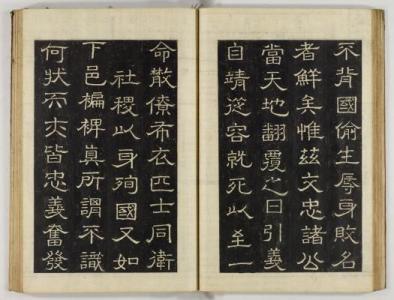 不背國偷生辱身敗名
者鮮矣惟茲文忠諸公
當天地翻覆之日引義
自靖從容就死以至一
命散僚布衣匹士同衛
社稷以身殉國又如
下邑褊裨真所謂不識
何狀而大皆忠義奮發